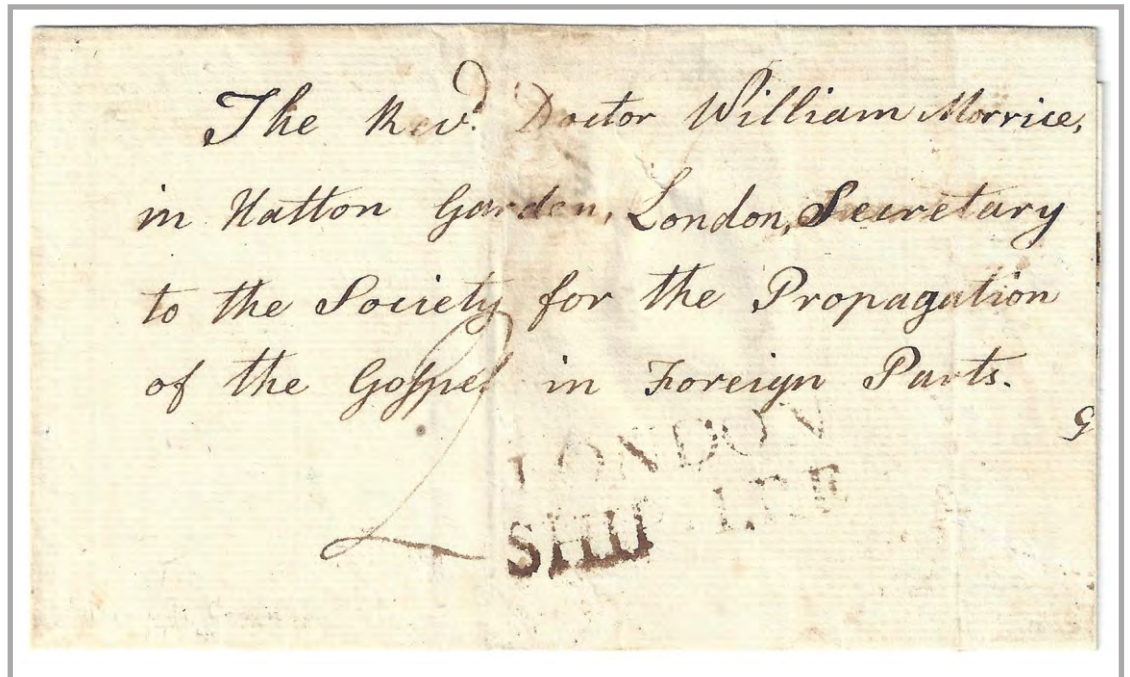 The Revd. Doctor William Morrice,
in Hatton Garden, London, Secretary
to the Society for the Propagation
of the Gospel in Foreign Parts.
2
G
LONDON
SHIP-LRE